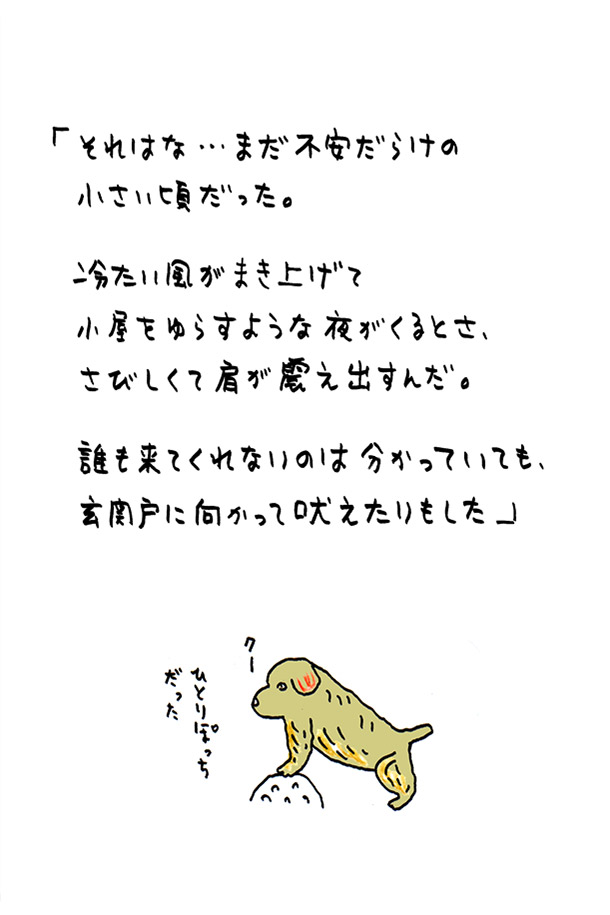 「それはな…まだ不安だらけの
小さい頃だった。
冷たい風がまき上げて
小屋をゆらすような夜がくるとさ、
さびしくて肩が震え出すんだ。
誰も来てくれないのは分かっていても、
玄関戸に向かって吠えたりもした」
クー
ひとりぽっち
だった